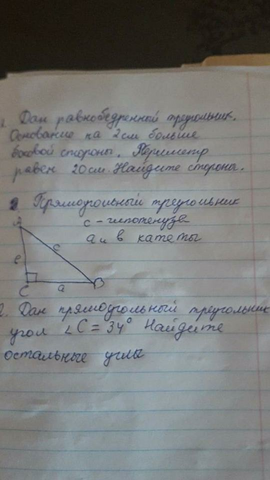 1. Дан равнобедренный треугольник.
Основание на 2см больше
боковой стороны. Периметр
равен 20см. Найдите стороны.
Прямоугольный треугольник
c - гипотенуза
a и в катеты
A
c
в
C
a
2. Дан прямоугольный треугольник
угол ∠C = 34° Найдите
остальные углы